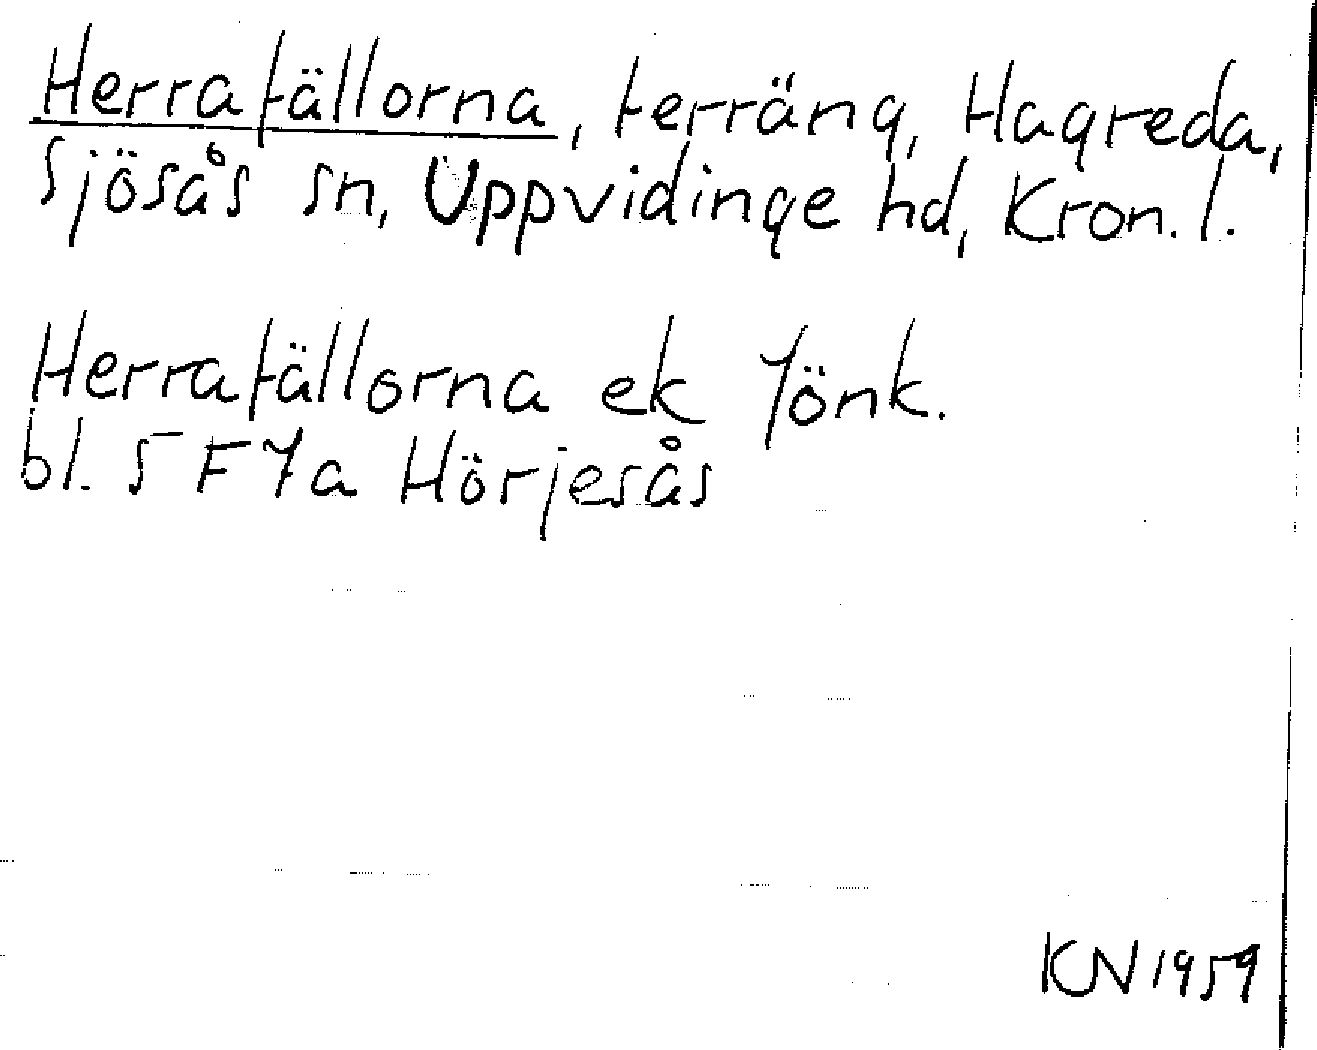 Herrafällorna, terräng, Hagreda,
Sjösås sn, Uppvidinge hd, Kron. l.
Herrafällorna ek Jönk.
bl. 5 F 7a Hörjesås
KN 1959